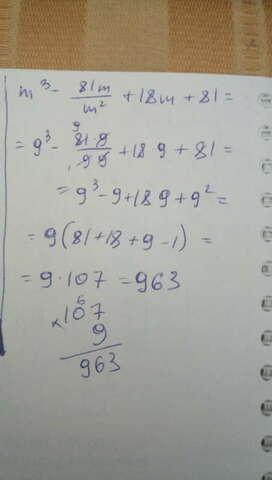 m³ - 81m/m² + 18m + 81 =
9
= 9³ - 81·9/9·9 + 18·9 + 81 =
= 9³ - 9 + 18·9 + 9² =
= 9(81 + 18 + 9 - 1) =
= 9·107 = 963
6
×107
9
963